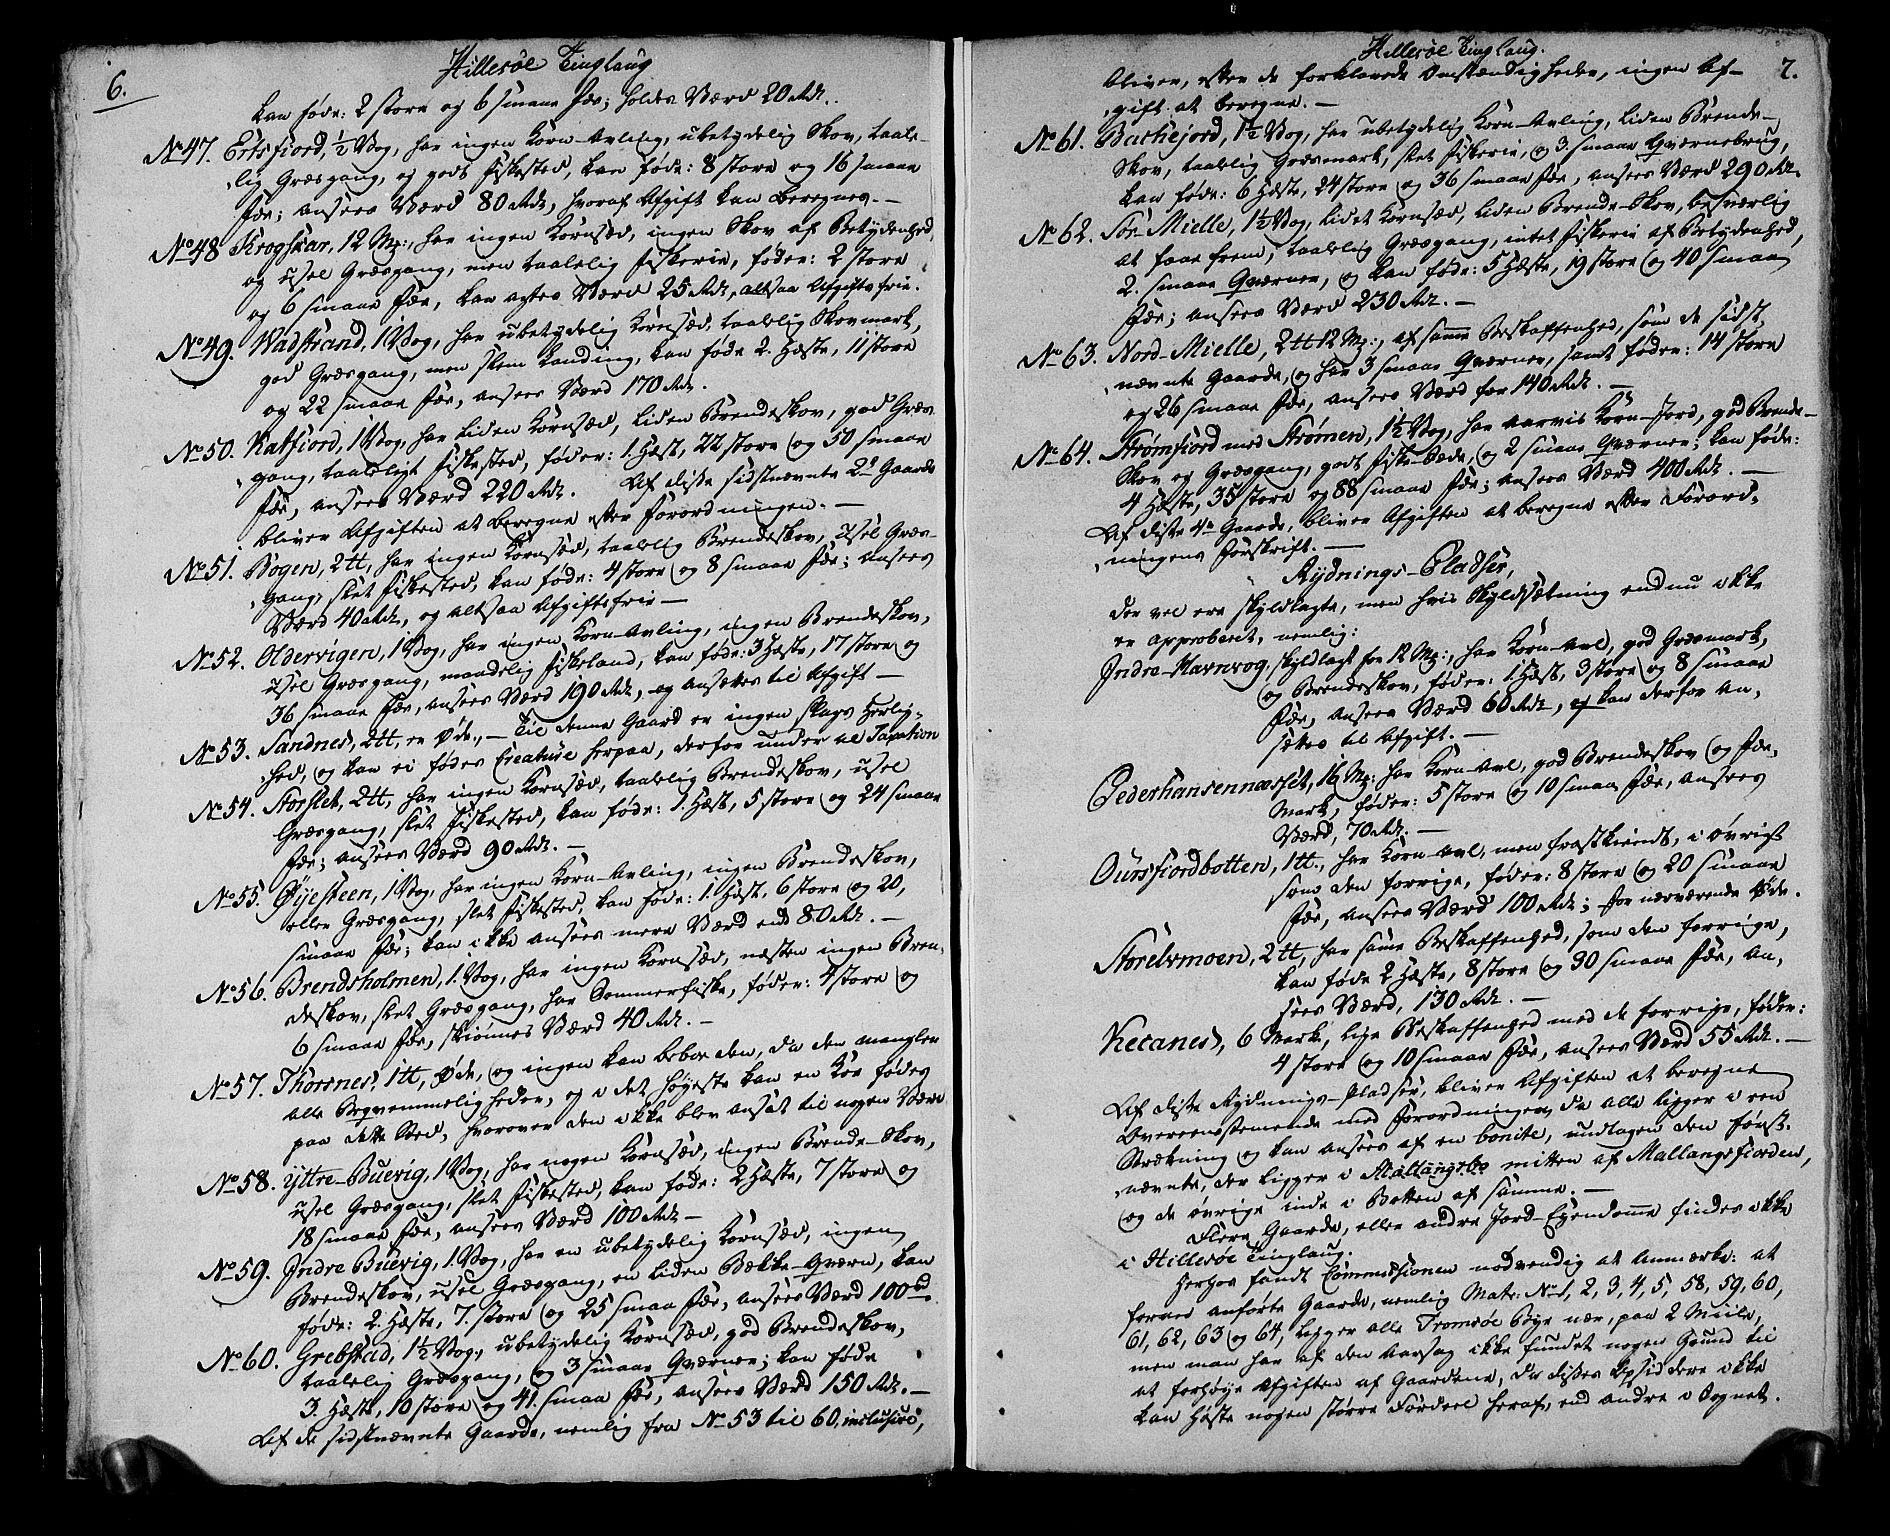 6.
Hillesøe Tinglaug
kan føde: 2 store og 6 smaae Fæe; holdes Værd 20 Rdr.
No 47. Ertsfiord, ½ Vog, har ingen Korn-Avling, ubetydelig Skov, taale-
lig Græsgang, og godt Fiskested, kan føde: 8 store og 16 smaae
Fæe; ansees Værd 80 Rdr, hvoraf Afgift kan beregnes.-
No 48 Krogskar, 12 Mk:, har ingen Kornsæd, ingen Skov af Betydenhed,
og usel Græsgang, men taalelig Fiskerie, føder: 2 store
og 6 smaae Fæe, kan agtes Værd 25 Rdr, altsaa Afgifts frie.
No 49. Wadstrand, 1 Vog, har ubetydelig Kornsæd, taalelig Skovmark,
god Græsgang, men slem Landing, kan føde 2. Heste, 11 store
og 22 smaae Fæe, ansees Værd 170 Rdr.
No 50. Katfiord, 1 Vog, har liden Kornsæd, liden Brendeskov, god Græs
gang, taaleligt Fiskested, føder: 1. Hæst, 22 store og 50 smaae
Fæe, ansees Værd 220 Rdr. Af disse sidstnævnte 2de Gaarde
bliver Afgiften at beregne efter Forordningen.-
No 51. Bogen, 2 tt, har ingen Kornsæd, taalelig Brendeskov, usel Græs-
gang, slet Fiskested, kan føde: 4 store og 8 smaae Fæe; ansees
Værd 40 Rdr, og altsaa Afgiftsfrie-
No 52. Oldervigen, 1 Vog, har ingen Korn-Avling, ingen Brendeskov,
usel Græsgang, maadelig Fiskeland, kan føde: 3 Hæste, 17 store og
36 smaae Fæe, ansees Værd 190 Rdr, og ansættes til Afgift-
No 53. Sandnes, 2 tt, er Øde,- Til denne Gaard er ingen slags Herlig-
hed, og kan ei fødes Creature herpaa, derfor under al Taxation
No 54. Storslet, 2 tt, har ingen Kornsæd, taalelig Brendeskov, usel
Græsgang, slet Fiskested, kan føde: 1. Hæst, 5 store og 24 smaae
Fæe; ansees Værd 90 Rdr.-
No 55. Øyesteen, 1 Vog, har ingen Korn-Avling, ingen Brendeskov,
eller Græsgang, slet Fiskested, kan føde: 1. Hæst, 6 store og 20,
smaae Fæe; kan ikke ansees mere Værd end 80 Rdr.-
No 56. Brendsholmen, 1. Vog, har ingen Kornsæd, næsten ingen Bren-
deskov, slet Græsgang, har Sommerfiske, føder: 4 store og
6 smaae Fæe, skiønnes Værd 40 Rdr.-
No 57. Thorsnes, 1 tt, Øde, og ingen kan beboe den, da den mangler
alle Beqvemmeligheder, og i det høyeste kan en Koe fødes
paa dette Sted, hvorover den ikke blev ansat til nogen Værd
No 58. Yttre-Buevig, 1 Vog, har nogen Kornsæd, ingen Brende-Skov,
usel Græsgang, slet Fiskested, kan føde: 2 Hæste, 7 store og
18 smaae Fæe, ansees Værd 100 Rdr-
No 59. Indre Buevig, 1. Vog, har en ubetydelig Kornsæd, ingen
Brendeskov, usel Græsgang, en liden Bække-Qværn, kan
føde: 2. Hæste, 7. store og 25 smaa Fæe, ansees Værd 100 rd.
No 60. Grebstad, 1½ Vog, ubetydelig Kornsæd, god Brendeskov,
taalelig Græsgang, og 3 smaae Qværner; kan føde
3. Hæste, 10 store og 41. smaa Fæe, ansees Værd 150 Rdr.-
Af de sidstnævnte Gaarde, nemlig fra No 53 til 60, inclusive,
Hillesøe Tinglaug.
7.
bliver, efter de forklarede Omstændigheder, ingen Af-
gift at beregne.-
No 61. Bachejord, 1½ Vog, har ubetydelig Korn-Avling, liden Brende-
Skov, taalelig Græsmark, slet Fiskerie, og 3. smaae Qværnebrug,
kan føde: 6 Hæste, 24 store og 36 smaae Fæe, ansees Værd 290 Rdr.
No 62. Sør Mielle, 1½ Vog, lidet Kornsæd, liden Brende-Skov, besværlig
at faae frem, taalelig Græsgang, intet Fiskerie af Betydenhed,
2. smaae Qværner, og kan føde: 5 Hæste, 19 store og 40 smaae
Fæe; ansees Værd 230 Rdr.-
No 63. Nord-Mielle, 2 tt 12 Mk:, af samme Beskaffenhed, som de sidst
nævnte Gaarde, og har 3 smaae Qværner, samt føder: 14 store
og 26 smaae Fæe, ansees Værd for 140 Rdr.-
No 64. Strømfiord med Strømen, 1½ Vog, har aarvis Korn-Jord, god Brende-
Skov og Græsgang, godt Fiske-Sæde, og 2 smaae Qværner; kan føde:
4 Hæste, 35 store og 88 smaae Fæe; ansees Værd 400 Rdr.-
Af diste 4re Gaarde, bliver Afgiften at beregne efter Forord-
ningens Forskrift.-
Rydnings-Pladser,
der vel ere skyldlagte, men hvis Skyldsætning endnu ikke
er approberet, nemlig:
Indre-Mavnvog, skyldlagt for 12 Mk:, har Korn-Avl, god Græsmark,
og Brendeskov, føder: 1 Hæst, 3 store og 8 smaae
Fæe, ansees Værd 60 Rdr, og kan derfor an-
sættes til Afgift.-
Pederhansennæsset, 16 Mk: har Korn-Avl, god Brendeskov og Fæe-
Mark, føder: 5 store og 10 smaa Fæe, ansees
Værd, 70 Rdr.-
Oursfiordbotten, 1 tt., har Korn-Avl, men frostkiendt, i øvrigt
som den forrige, føder: 8 store og 20 smaae
Fæe, ansees Værd 100 Rdr; for nærværende Øde.
Storelvmoen, 2 tt, har same Beskaffenhed, som den forrige,
kan føde 2 Hæste, 8 store og 30 smaae Fæe, an-
sees Værd, 130 Rdr.-
Kecanes, 6 Mark, lige Beskaffenhed med de forrige, føder:
4 store og 10 smaae Fæe, ansees Værd 55 Rdr.-
Af diste Rydnings-Pladser, bliver Afgiften at beregne
Overeensstemmende med Forordningen, da alle ligger i een
Strækning og kan ansees af en bonite, undtagen den først-
nævnte, der ligger i Mallangsbo mitten af Mallangsfiorden,
og de øvrige inde i Botten af samme.-
Flere Gaarde, eller andre Jord-Eyendomme findes ikke
i Hillesøe Tinglaug.
Herhos fandt Commissionen nødvendig at anmærke: at
foran anførte Gaarde, nemlig Matr: No 1, 2, 3, 4, 5, 58, 59, 60,
61, 62, 63 og 64, ligger alle Tromsøe Bye nær, paa 2 Miile,
men man har af den Aarsag ikke fundet nogen Grund til
at forhøye Afgiften af Gaardene, da disses Opsiddere ikke
kan høste nogen større Fordeel heraf, end andre i Sognet.